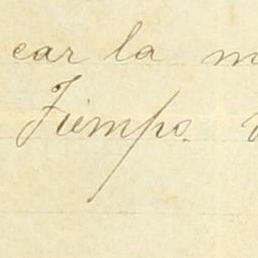 car la
Tiempo.